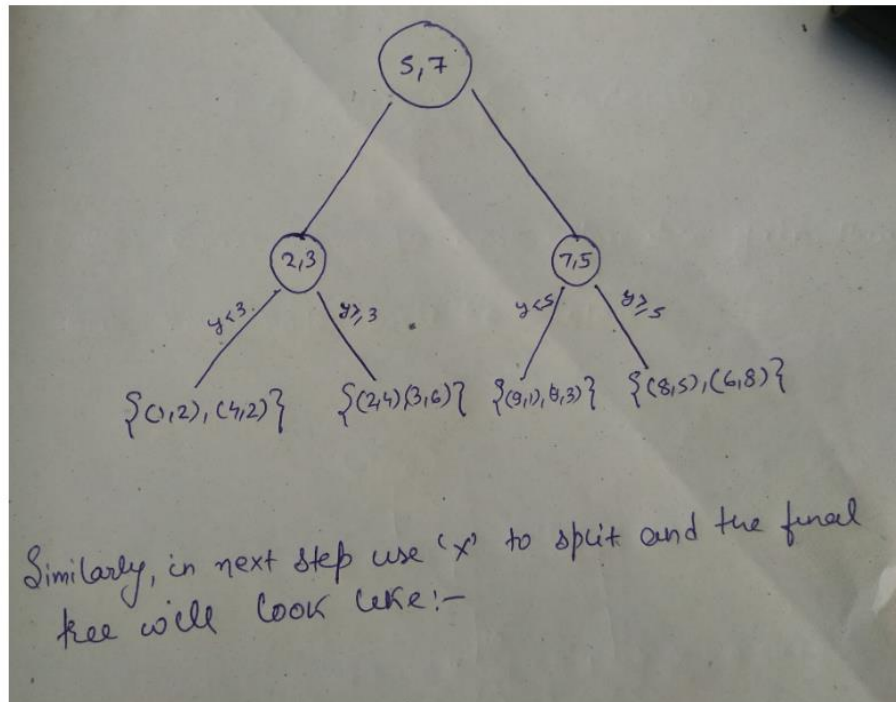 5,7
2,3
7,5
y<3.
y≥3
y<5
y≥5
{(1,2),(4,2)}
{(2,4)(3,6)}
{(9,1),(8,3)}
{(8,5),(6,8)}
Similarly, in next step use 'x' to split and the final
tree will look like:-